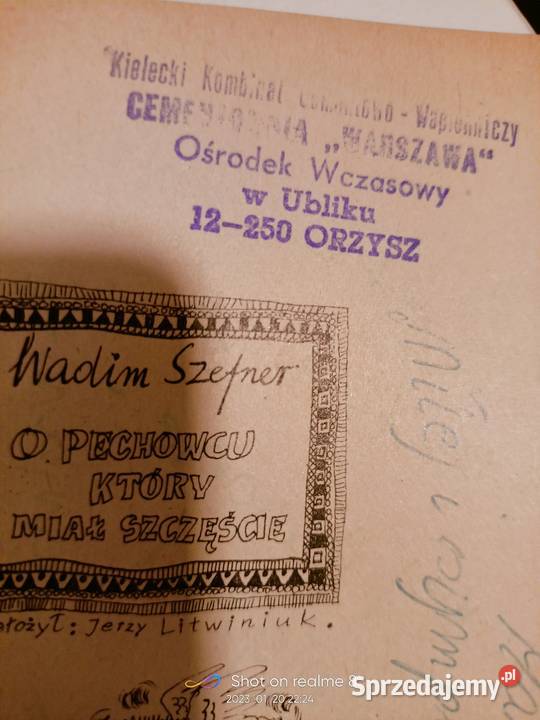 Kielecki Kombinat Cementowo - Wapienniczy
CEMENTOWNIA „WARSZAWA“
Ośrodek Wczasowy
w Ubliku
12-250 ORZYSZ
Wadim Szefner
O PECHOWCU
KTÓRY
MIAŁ SZCZĘŚCIE
ałożył: Jerzy Litwiniuk.
Shot on realme 8
2023/01/20 22:24
Sprzedajemy.pl